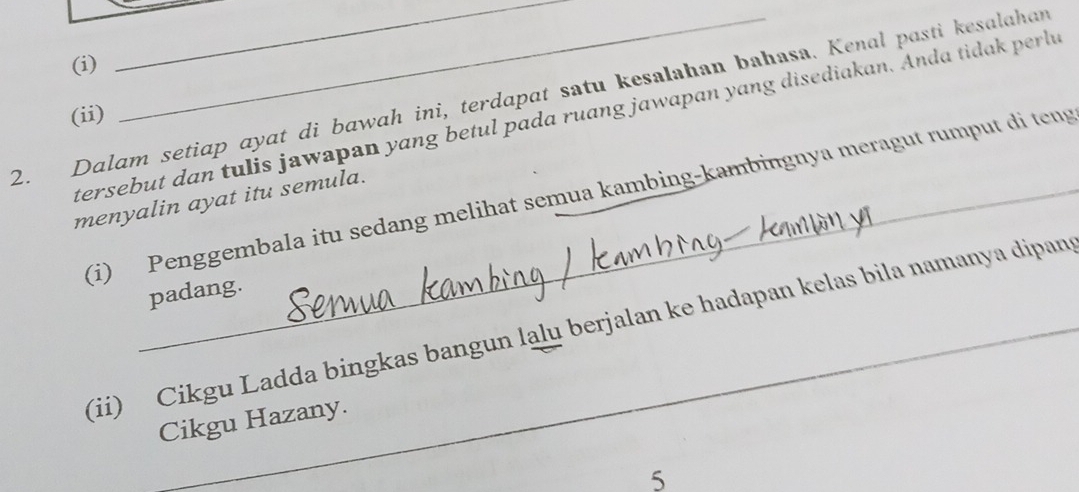 (i)
(ii)
2. Dalam setiap ayat di bawah ini, terdapat satu kesalahan bahasa. Kenal pasti kesalahan
tersebut dan tulis jawapan yang betul pada ruang jawapan yang disediakan. Anda tidak perlu
menyalin ayat itu semula.
(i) Penggembala itu sedang melihat semua kambing-kambingnya meragut rumput di teng
padang.
Semua kambing / kambing-
(ii) Cikgu Ladda bingkas bangun lalu berjalan ke hadapan kelas bila namanya dipang
Cikgu Hazany.
5